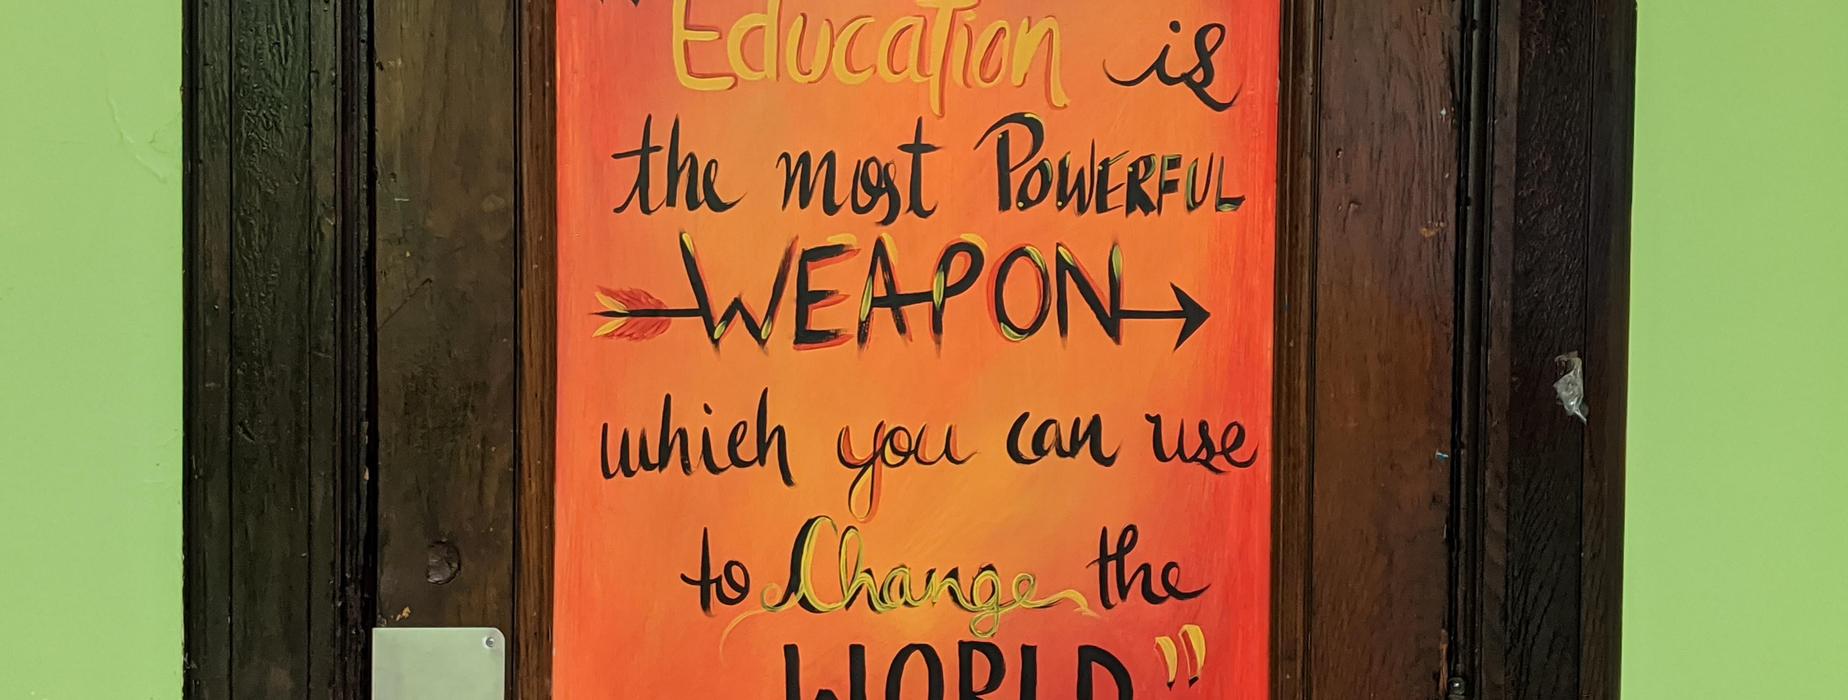 Education is
the most POWERFUL
WEAPON
which you can use
to Change the
WORLD"